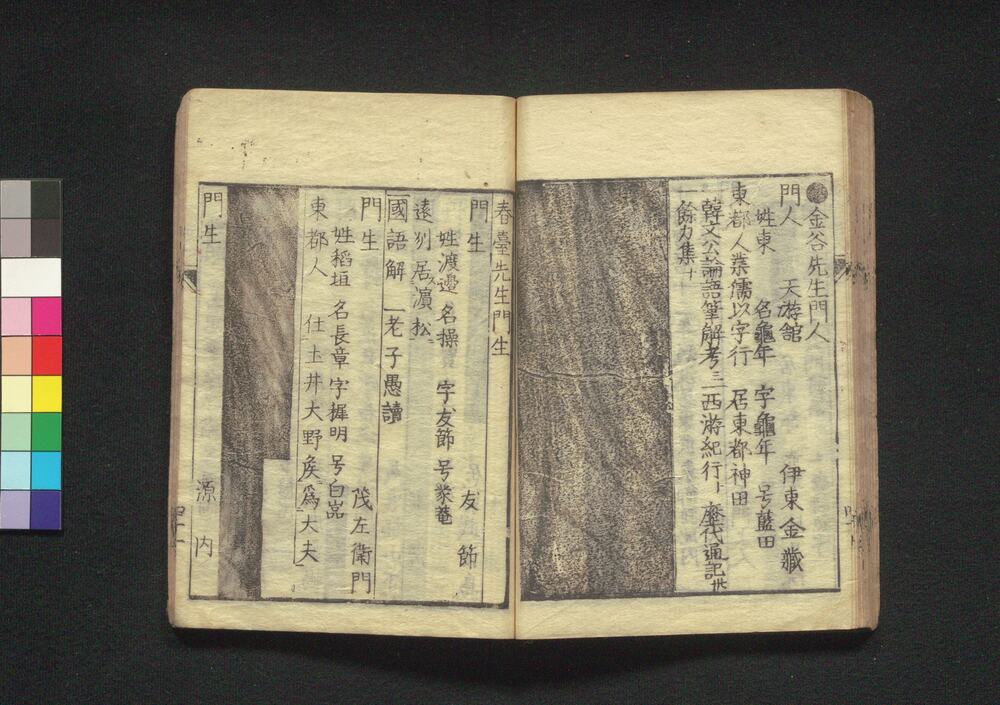 金谷先生門人
門人　天游館　伊東金藏
姓東　名龜年　字龜年　号藍田
東都人業儒以字行　居東都神田
韓文公論語筆解考二　西游紀行一　歴代通記卅
餘力集十
春臺先生門生
門生　友節
姓渡邊　名操　字友節　号蒙菴
遠州居濵松
國語解　老子愚讀
門生　茂左衛門
姓稻垣　名長章　字穉明　号白嵓
東都人　仕土井大野侯爲大夫
門生　源内
四十一